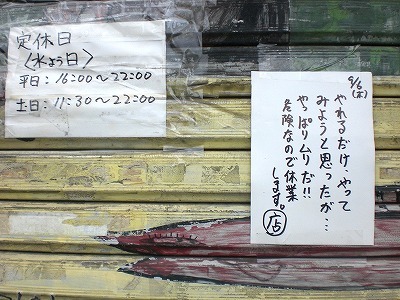 定休日
〈水よう日〉
平日：16:00〜22:00
土日：11:30〜22:00
9/6
(木)
やれるだけ、やって
みようと思ったが…
やっぱりムリだ!!
危険なので休業
します。
店